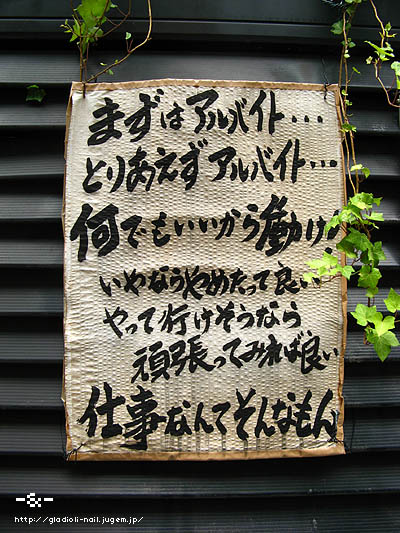 まずはアルバイト・・・
とりあえずアルバイト・・・
何でもいいから働け!
いやならやめたって良い
やって行けそうなら
頑張ってみれば良い
仕事なんてそんなもん
-S-
http://gladioli-nail.jugem.jp/